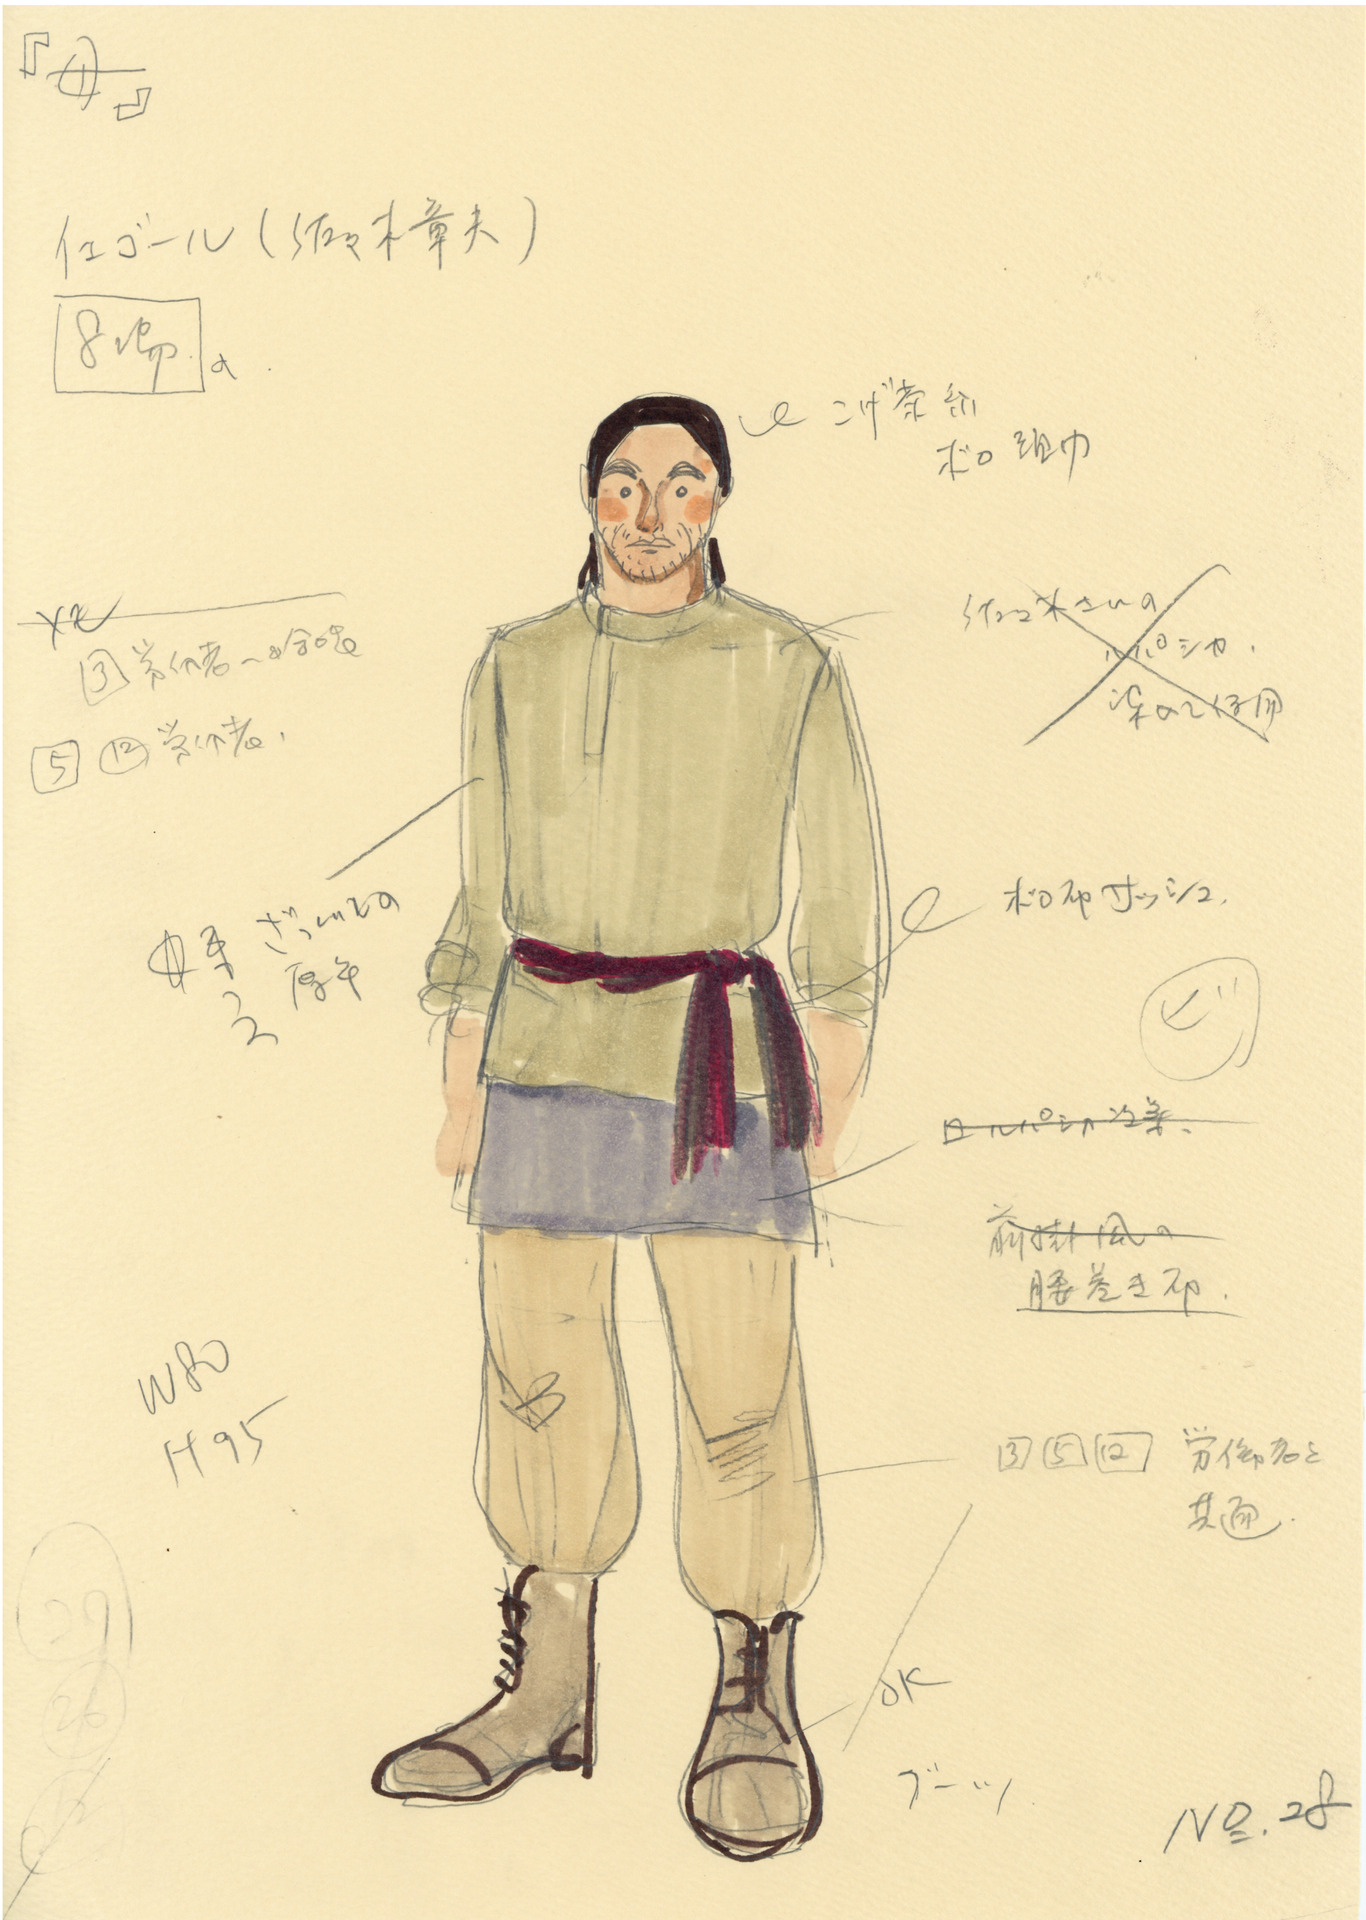 『母』
イエゴール（佐々木章夫）
8場の
こげ茶
ボロ頭巾
佐々木さんの
ルパシカ
染めて使用
3 労働者
5 12 労働者
ざっくりとの
厚手
ボロ布サッシュ
ビ
ルパシカ
前掛風の
腰巻き布
W80
H95
3 5 12 労働者と
共通
OK
ブーツ
29
26
No. 28